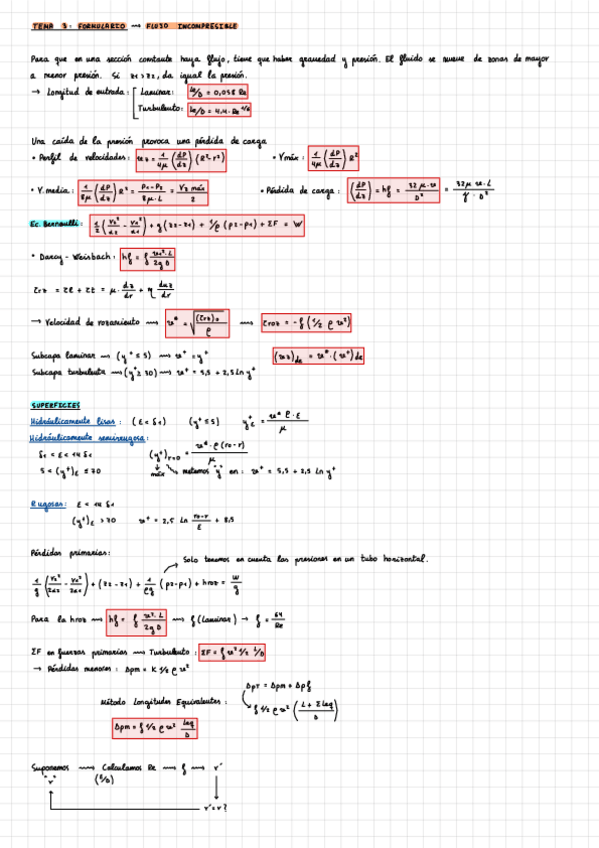 TEMA 3: FORMULARIO → FLUJO INCOMPRESIBLE
Para que en una sección constante haya flujo, tiene que haber gravedad y presión. El fluido se mueve de zonas de mayor
a menor presión. Si z1 > z2, da igual la presión.
→ Longitud de entrada: Laminar: Le/D = 0,058 Re
Turbulento: Le/D = 4,4 · Re^1/6
Una caída de la presión provoca una pérdida de carga
• Perfil de velocidades: vz = 1/4μ (dP/dz) (R² - r²) • V máx: 1/4μ (dP/dz) R²
• V. media: 1/8μ (dP/dz) R² = P1-P2/8μ·L = Vz máx/2 • Pérdida de carga: (dP/dz) = hf = 32 μ·v/D² = 32 μ v·L/γ·D²
Ec. Bernoulli: 1/2 (v2²/α2 - v1²/α1) + g (z2-z1) + 1/ρ (p2-p1) + ΣF = W
• Darcy - Weisbach: hf = f v²·L/2g D
→ Velocidad de rozamiento → v* = √((τrz)o/ρ) → τroz = -f (1/2 ρ v²)
Subcapa laminar → (y⁺ ≤ 5) → v⁺ = y⁺
Subcapa turbulenta → (y⁺ ≥ 30) → v⁺ = 5,5 + 2,5 ln y⁺
SUPERFICIES
Hidráulicamente lisas: (ε < δ1) (y⁺ ≤ 5) y⁺ε = v* ρ·ε/μ
Hidráulicamente semirrugosa:
δ1 < ε < 14 δ1 (y⁺)r=0 = v*·ρ (ro-r)/μ
5 < (y⁺)ε ≤ 70 máx metemos "y" en: v⁺ = 5,5 + 2,5 ln y⁺
Rugosas: ε < 14 δ1
(y⁺)ε > 70 v⁺ = 2,5 ln ro-r/ε + 8,5
Pérdidas primarias: Solo tenemos en cuenta las presiones en un tubo horizontal.
1/g (v2²/2α2 - v1²/2α1) + (z2-z1) + 1/ρg (p2-p1) + hroz = W/g
Para la hroz → hf = f v²·L/2g D → f (Laminar) → f = 64/Re
ΣF en fuerzas primarias → Turbulento: ΣF = f v² 1/2 L/D
→ Pérdidas menores: Δpm = K 1/2 ρ v²
Δpt = Δpm + Δpf
Método Longitudes Equivalentes: f 1/2 ρ v² (L + Σ Leq/D)
Δpm = f 1/2 ρ v² Leq/D
Suponemos → Calculamos Re → f → r'
"r" (ε/D)
r' = r?